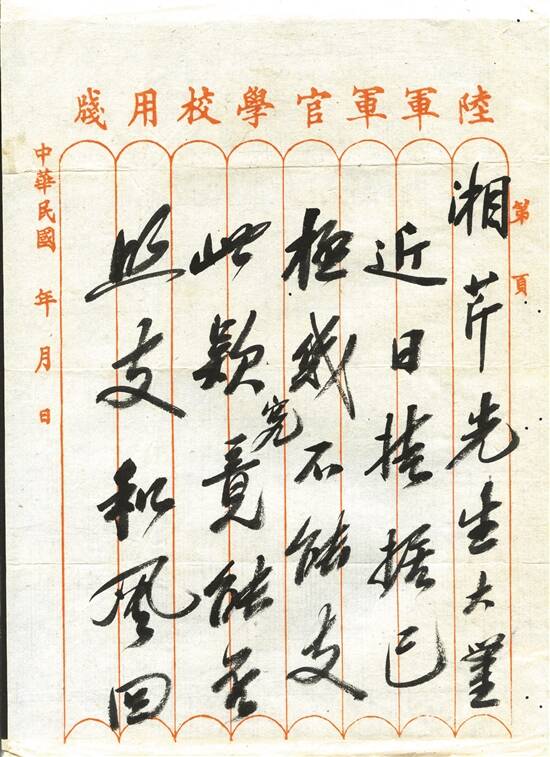 陸軍軍官學校用牋
第 頁
湘芹先生大鑒
近日拮据已
極幾不能支
此款究竟能否
照支和風回
中華民國 年 月 日